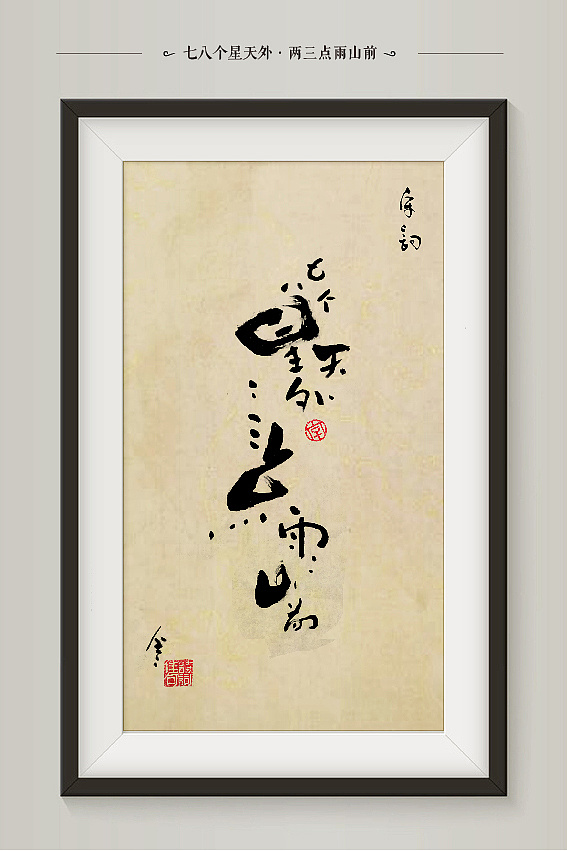 七八个星天外·两三点雨山前
宋词
七八个
星天
外
三点
雨
山前